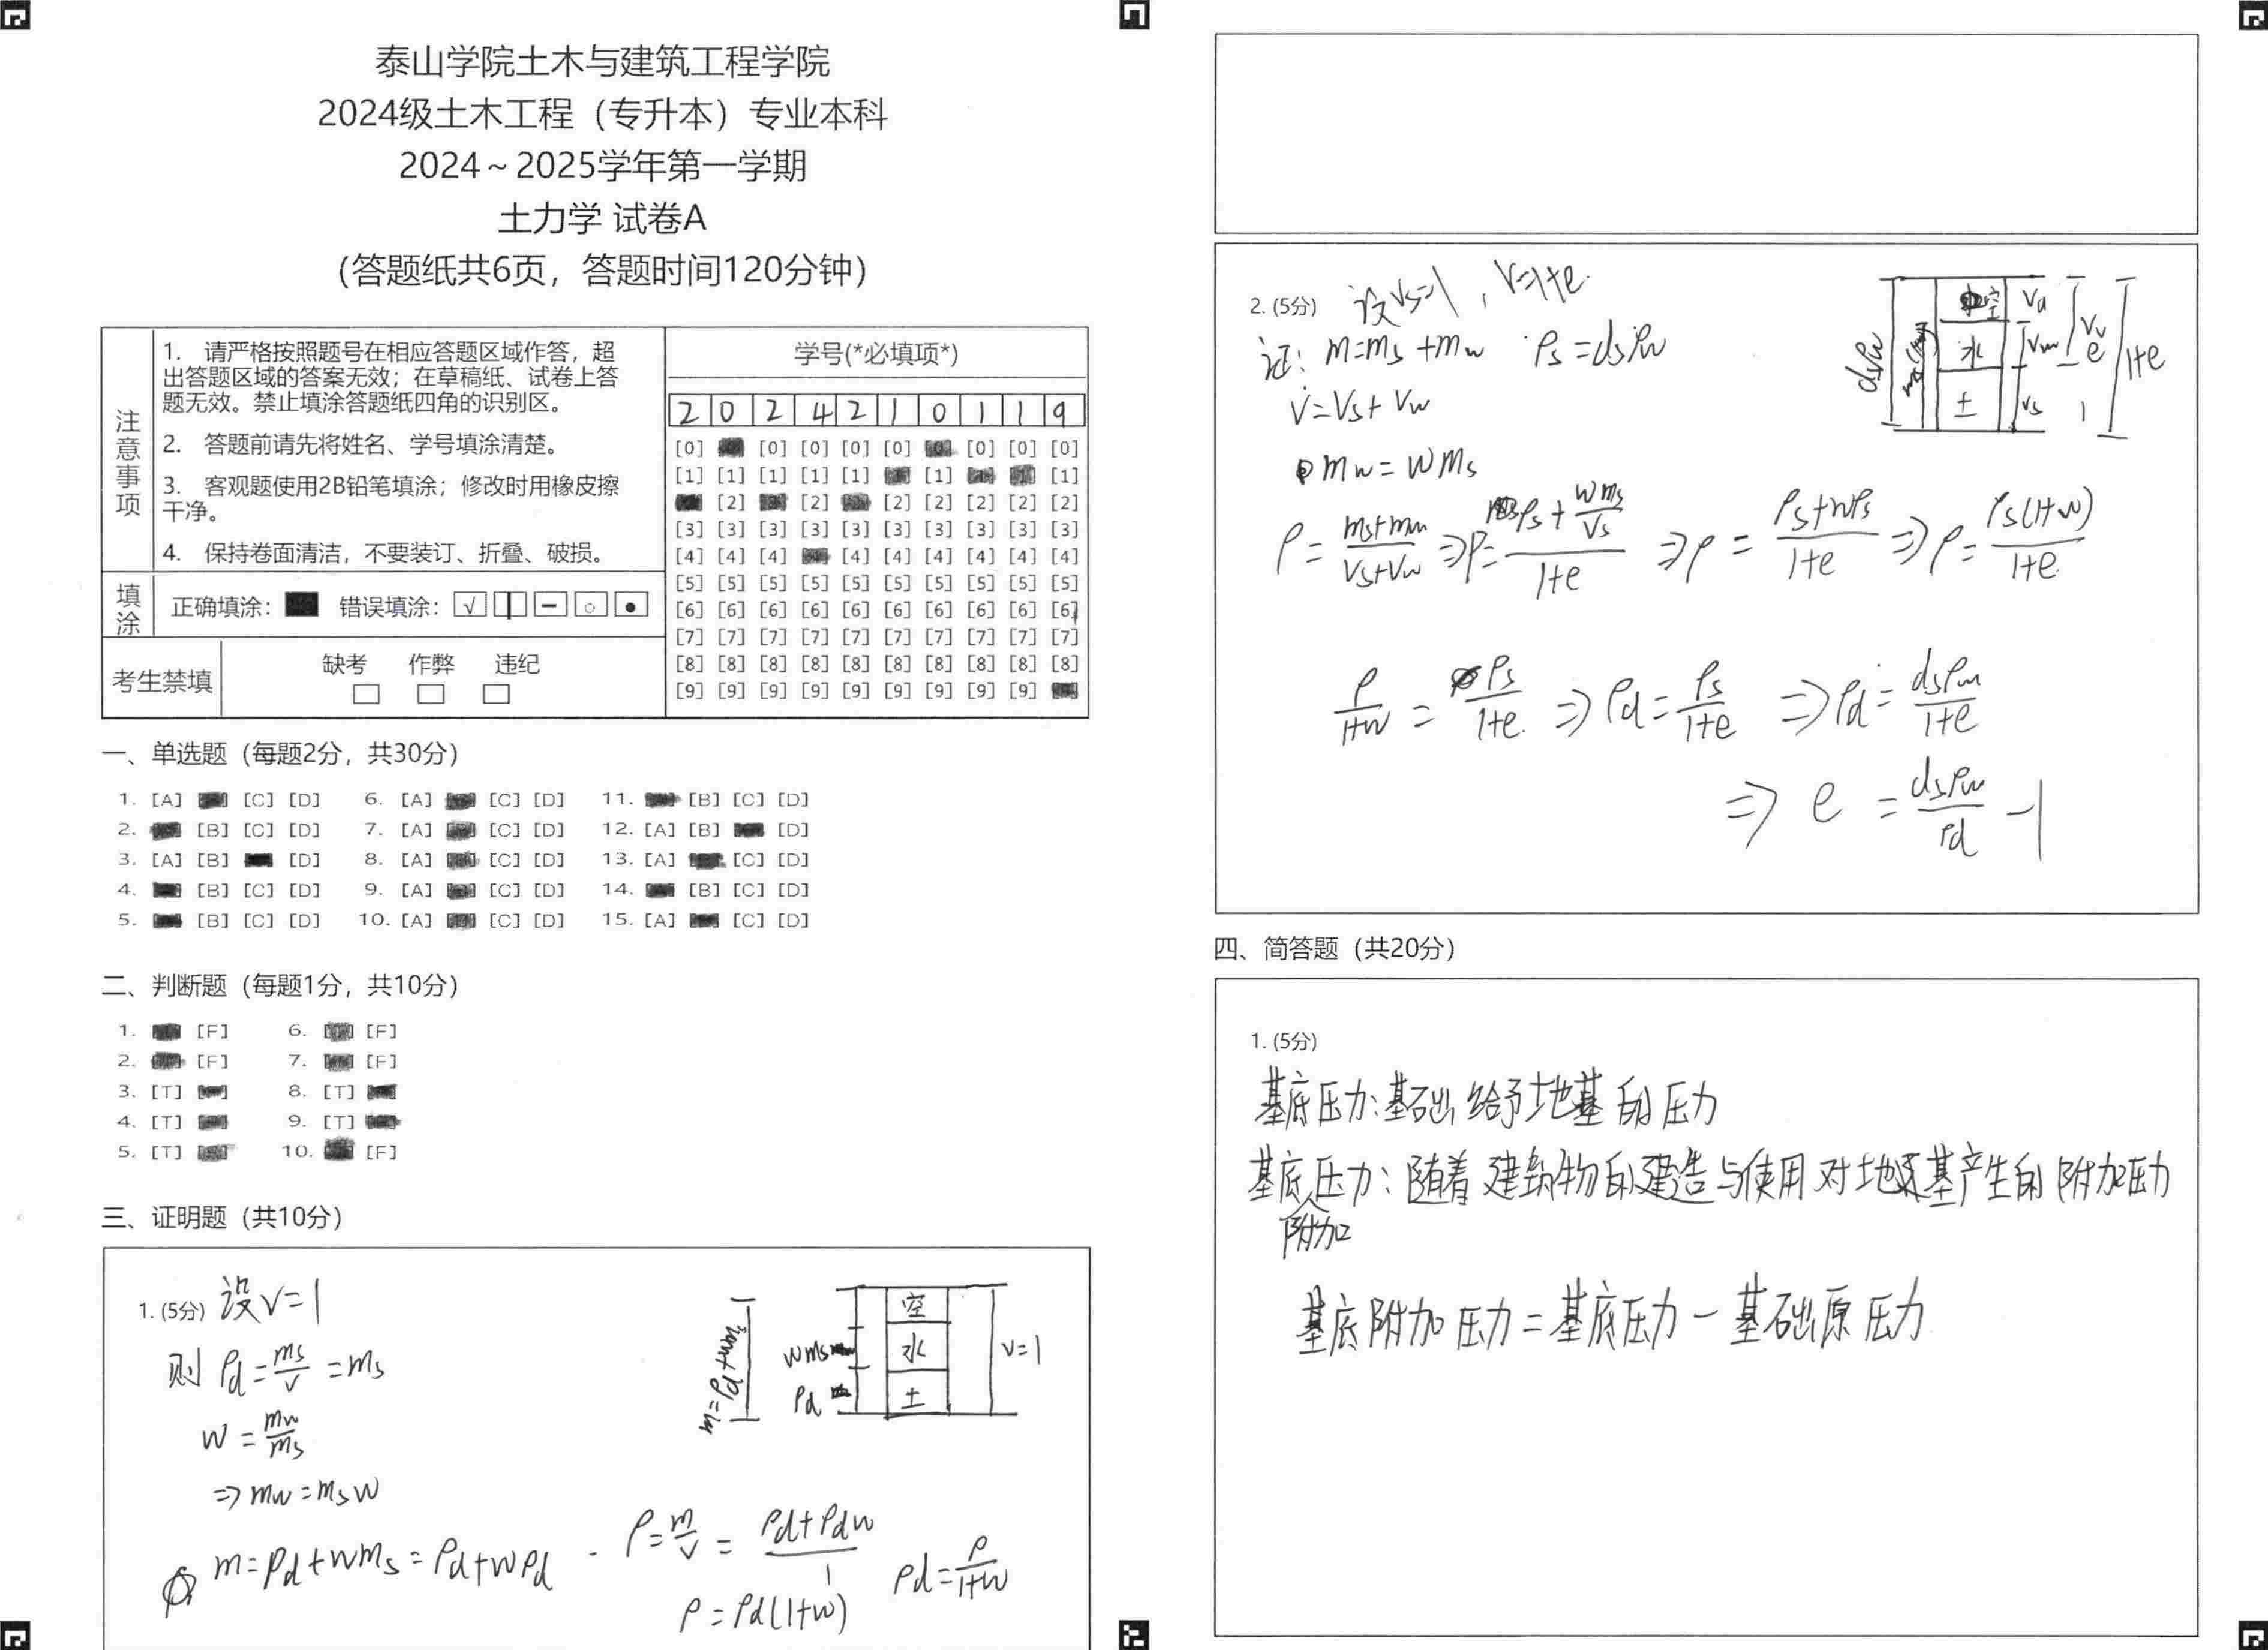 泰山学院土木与建筑工程学院
2024级土木工程（专升本）专业本科
2024～2025学年第一学期
土力学 试卷A
（答题纸共6页，答题时间120分钟）
注意事项
1. 请严格按照题号在相应答题区域作答，超
出答题区域的答案无效；在草稿纸、试卷上答
题无效。禁止填涂答题纸四角的识别区。
2. 答题前请先将姓名、学号填涂清楚。
3. 客观题使用2B铅笔填涂；修改时用橡皮擦
干净。
4. 保持卷面清洁，不要装订、折叠、破损。
填涂 正确填涂： 错误填涂： √ | − ○ ●
考生禁填 缺考 作弊 违纪
学号(*必填项*)
2 0 2 4 2 1 0 1 1 9
[0] [0] [0] [0] [0] [0] [0] [0]
[1] [1] [1] [1] [1] [1] [1]
[2] [2] [2] [2] [2] [2] [2]
[3] [3] [3] [3] [3] [3] [3] [3] [3] [3]
[4] [4] [4] [4] [4] [4] [4] [4] [4]
[5] [5] [5] [5] [5] [5] [5] [5] [5] [5]
[6] [6] [6] [6] [6] [6] [6] [6] [6] [6]
[7] [7] [7] [7] [7] [7] [7] [7] [7] [7]
[8] [8] [8] [8] [8] [8] [8] [8] [8] [8]
[9] [9] [9] [9] [9] [9] [9] [9] [9]
一、单选题（每题2分，共30分）
1. [A] [C] [D] 6. [A] [C] [D] 11. [B] [C] [D]
2. [B] [C] [D] 7. [A] [C] [D] 12. [A] [B] [D]
3. [A] [B] [D] 8. [A] [C] [D] 13. [A] [C] [D]
4. [B] [C] [D] 9. [A] [C] [D] 14. [B] [C] [D]
5. [B] [C] [D] 10. [A] [C] [D] 15. [A] [C] [D]
二、判断题（每题1分，共10分）
1. [F] 6. [F]
2. [F] 7. [F]
3. [T] 8. [T]
4. [T] 9. [T]
5. [T] 10. [F]
三、证明题（共10分）
1. (5分) 设V=1
则 ρd=ms/V=ms
w=mw/ms
⇒mw=msw
m=ρd+wms=ρd+wρd
ρ=m/V=(ρd+ρdw)/1
ρ=ρd(1+w)
ρd=ρ/(1+w)
空
水
土
wms
ρd
V=1
2. (5分) 设Vs=1，V=1+e.
证：m=ms+mw ρs=dsρw
V=Vs+Vw
mw=wms
ρ=(ms+mw)/(Vs+Vw)⇒ρ=(ρs+wms/Vs)/(1+e)⇒ρ=(ρs+wρs)/(1+e)⇒ρ=ρs(1+w)/(1+e)
ρ/(1+w)=ρs/(1+e)⇒ρd=ρs/(1+e)⇒ρd=dsρw/(1+e)
⇒e=dsρw/ρd-1
空 Va
水 Vw
土 Vs
Vv
e
1
1+e
dsρw
四、简答题（共20分）
1. (5分)
基底压力：基础给予地基的压力
基底附加压力：随着建筑物的建造与使用对地基产生的附加压力
基底附加压力=基底压力－基础原压力